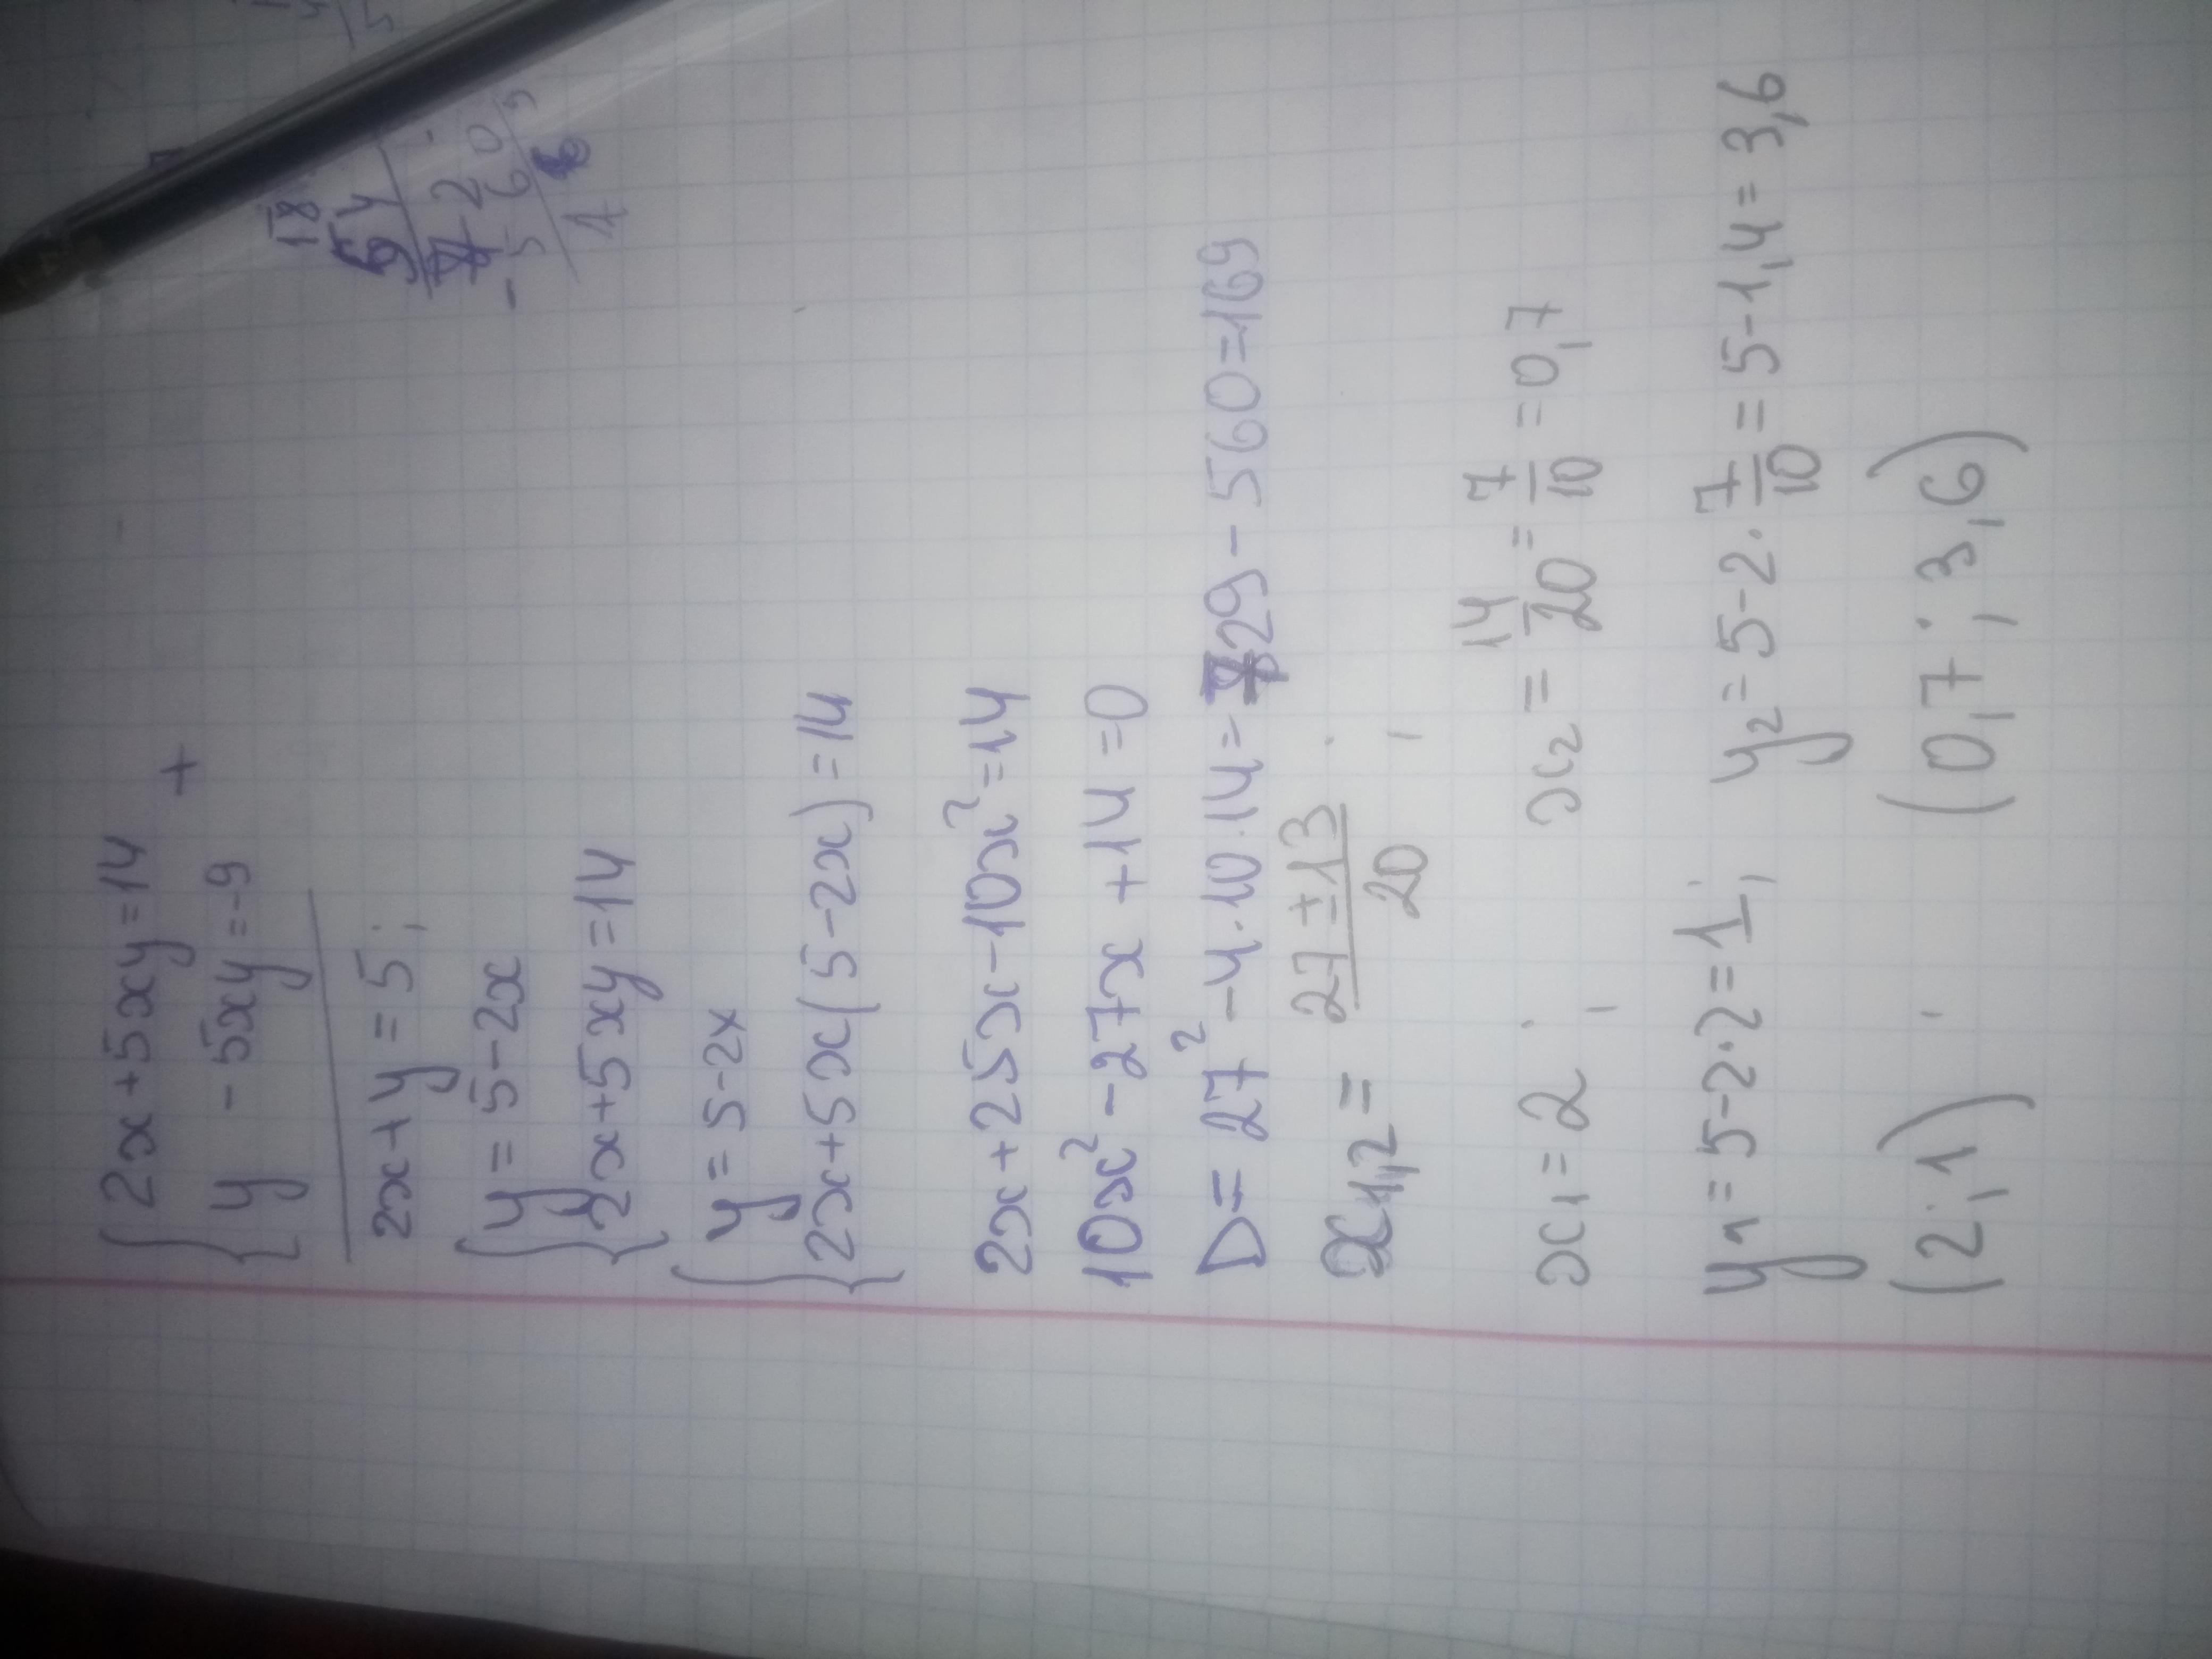 2x+5xy=14
+
y -5xy=-9
2x+y=5;
y=5-2x
2x+5xy=14
y=5-2x
2x+5x(5-2x)=14
2x+25x-10x²=14
10x²-27x+14=0
D=27²-4·10·14=729-560=169
x1,2= 27±13/20 ;
x1=2 ; x2= 14/20 = 7/10 =0,7
y1=5-2·2=1; y2=5-2·7/10=5-1,4=3,6
(2;1) , (0,7;3,6)
18
54
72
-560